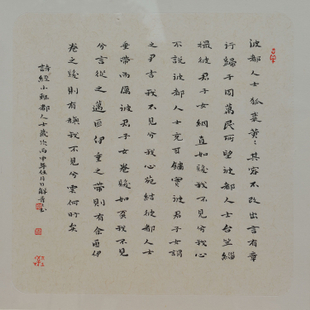 彼都人士狐裘黄々其容不改出言有章
行歸于周萬民所望彼都人士台笠緇
撮彼君子女綢直如髮我不見兮我心
不說彼都人士充耳琇實彼君子女謂
之尹吉我不見兮我心苑結彼都人士
垂帶而厲彼君子女卷髮如蠆我不見
兮言從之邁匪伊垂之帶則有餘匪伊
卷之髮則有旟我不見兮雲何盱矣
詩經小雅都人士歲次丙申年